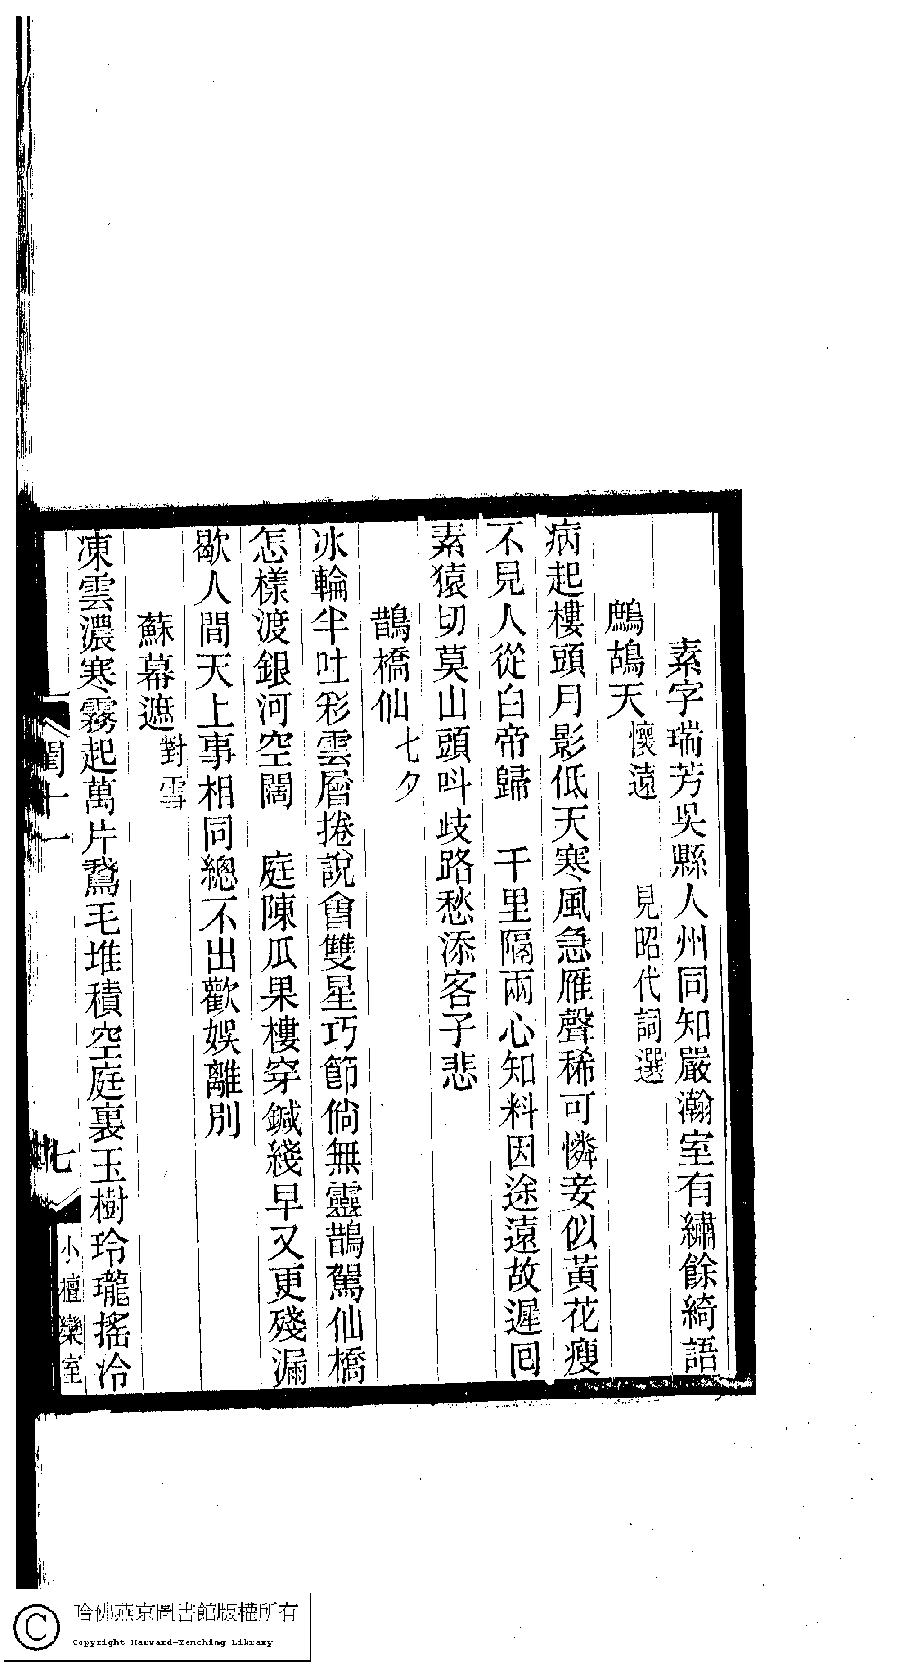 素字瑞芳吳縣人州同知嚴瀚室有繡餘綺語
鷓鴣天 懷遠 見昭代詞選
病起樓頭月影低天寒風急雁聲稀可憐妾似黃花瘦
不見人從白帝歸 千里隔兩心知料因途遠故遲回
素猿切莫山頭呌歧路愁添客子悲
鵲橋仙 七夕
冰輪半吐彩雲層捲說會雙星巧節倘無靈鵲駕仙橋
怎樣渡銀河空闊 庭陳瓜果樓穿鍼綫早又更殘漏
歇人間天上事相同總不出歡娛離別
蘇幕遮 對雪
凍雲濃寒霧起萬片鵞毛堆積空庭裏玉樹玲瓏搖冷
閨十一
七
小檀欒室
哈佛燕京圖書館版權所有
Copyright Harvard-Yenching Library